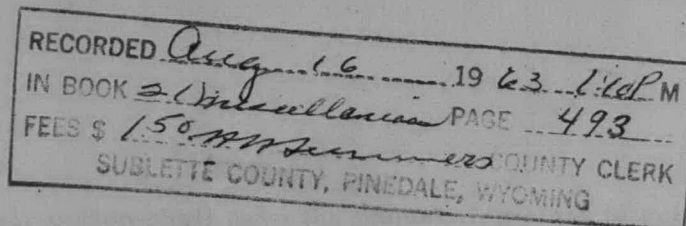 RECORDED Aug 16 1963 1:10P M
IN BOOK 21 Miscellaneous PAGE 493
FEES $ 1.50 Summers COUNTY CLERK
SUBLETTE COUNTY, PINEDALE, WYOMING